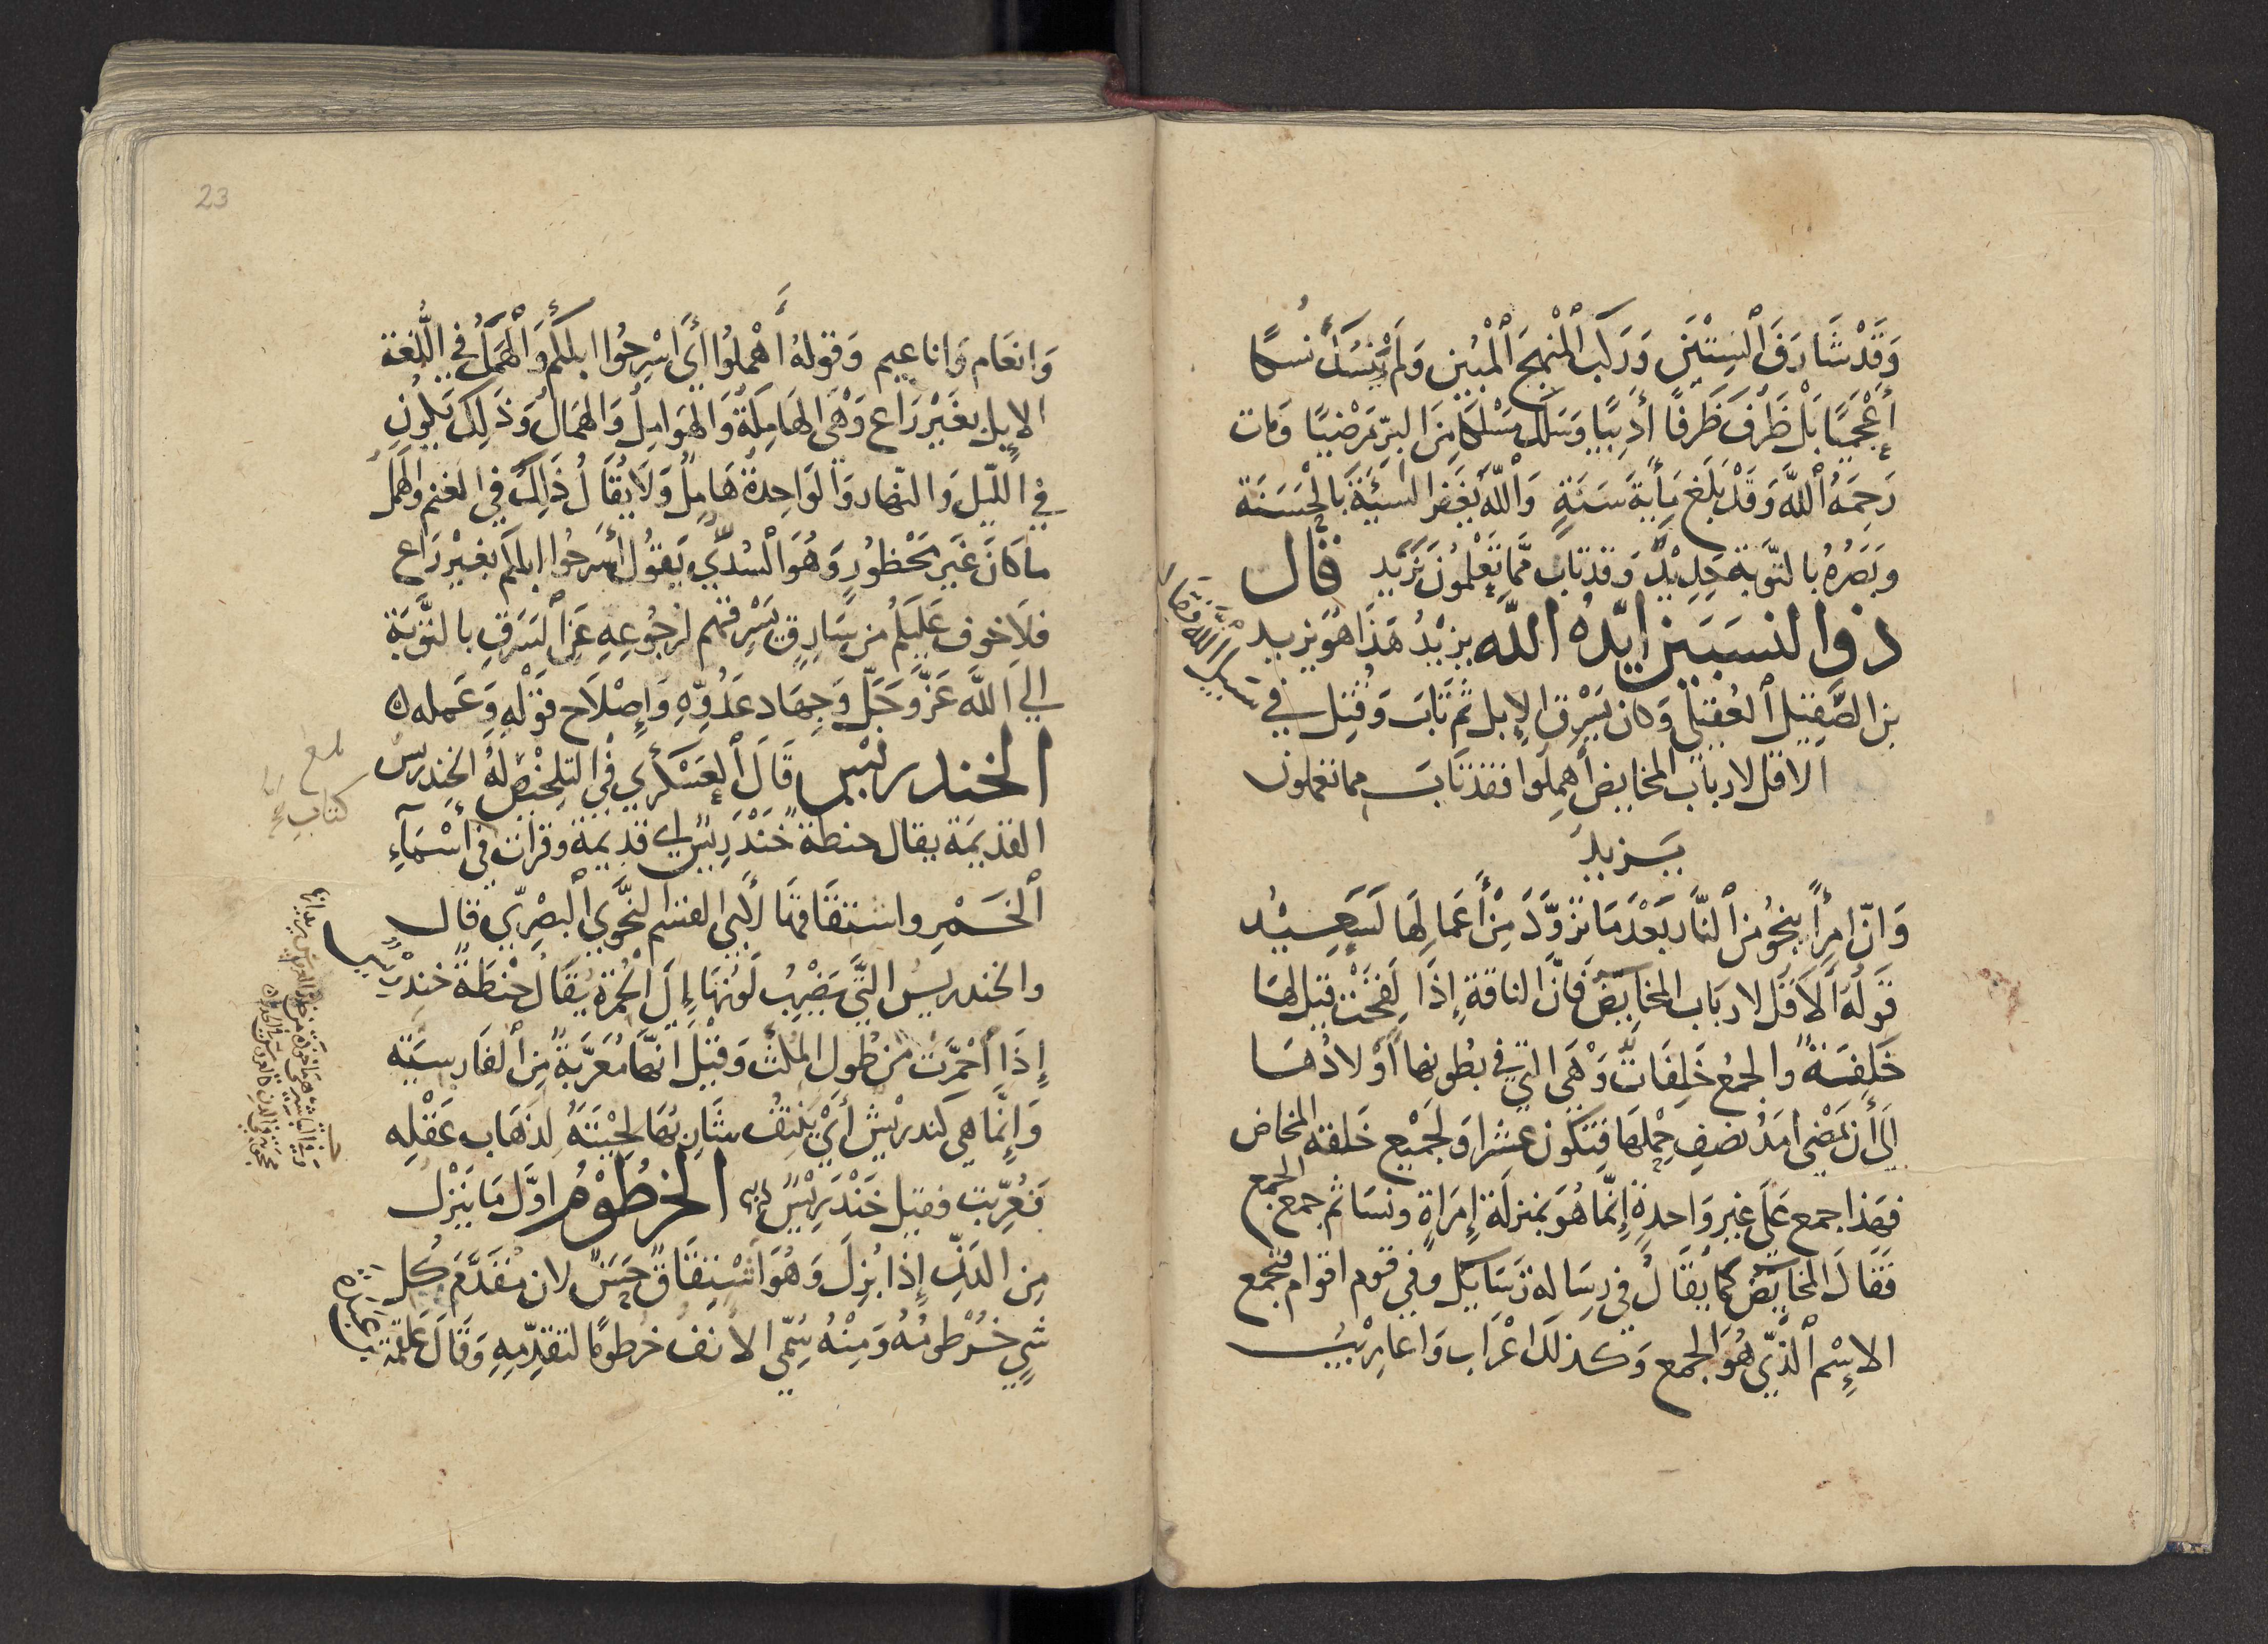 وَقَدْ شَارَفَ ٱلسِتِّينَ وَرَكبَ ٱلْمَنْهَجَ ٱلْمُبِين وَلَمْ يَنْسُكْ نُسكًا
أَعْجَمِيًا بَلْ ظَرُفَ ظَرْفًا أَدَبِيًّا وَسَلَكَ مَسْلكا مِنَ البِرّ مَرْضيًا وَمات
رَحِمَهُ ٱللَّه وَقَدْ بَلَغ مِأيةَ سَنَةٍ وَٱللَّه يَغْفِر السَيّئَةَ بالْحَسَنَة
وبَصَرُهُ بالتَّوبَة حَدِيْدٌ وَقد تابَ مِمَّا تَعْلمُونَ يَزيد قال
ذوالنسبَين ايّدُه اللّه يزيْدُ هَذا هو يزيد
بن الصِّقِيل العُقيلى وَكان يَسْرق الإبل ثم تَابَ وَقُتِل في
سبيل الله فقال
الاقل لارباب المخايض أَهمِلوا فقد تَابَ مما تعلمون
يَزيد
وَانّ امرأً ينجُو من النّار بَعْدَ مَا تزوَّدَ مِنْ أَعمَالِهَا لَسَعِيْدُ
قَولُهُ أَلاَ قُل لارباب المخايض فَانَّ الناقة إِذَا لَقِحَتْ قيل لهَا
خَلِفَةٌ والجمع خَلِفَات وَهْيَ التي في بُطونها أَوْلادُهَا
إلى أن يَمْضِى أمَدُ نصفِ حَمْلهَا فتكون عِشرا وَلجَمْيع خَلفه المخاض
فهذا جمع عَلَى غير وَاحِدِهِ إِنّمَا هُوَ بمنزلَة إِمرَاةٍ ونسَا ثم جمع الجمع
فَقَالَ المخايض كَما يُقَالُ في رِسَاله رَسَايل وفي قوم اقوام فتجمع
الاِسْم ٱلّذي هُوَ الجمع وَكَذلكَ اعْرَاب وَاعَارِيْبُ
23
وَانعَام وَاناعيم وَقولهُ أَهْملُوا أي اسْرِحُوا ابلكُم وَالْهَمَلُ في اللُغة
الإبل بغَيْر رَاع وَهْيَ الهَامِلَةُ وَالهَوَامِلُ وَالهمَالُ وَذَلِكَ يَكُونُ
في الليل والنّهار وَالوَاحِدةُ هَامِلٌ وَلاَ يُقَالُ ذَلِكَ في الغنم والهَمَلُ
ما كَانَ غَير مَحْظُورٍ وَهُوَ ٱلسُدَّي يَقُولُ أَسْرحُوا ابلكم بغيْر رَاع
فلاَ خوف عَلَيكُم من سَارِقٍ يَسْرِقهم لرُجُوعِهِ عَن السَرَقِ بالتَّوبَة
إلي اللَّه عَزَّ وَجَلَّ وَجِهَاد عَدُوِّهِ وَإِصْلاَح قَوْلهِ وَعَمله
الخندريْس قَالَ ٱلعَسْكَري في التلخيْص لهُ الخِندريسُ
القديمَة يقال حنطة خَنْدَرِيسٌ أي قديمَة وقرأت في أَسْمَآءِ
ٱلخَمْرِ واشتقاقهَا لأبي القسم النَّحوي البصْرِي قال
والخندريسُ التَّي يَضْرِبُ لَونُهَا إِلَى الْحُمْرَة يُقَالُ حِنْطَةٌ خندريس
إِذَا ٱحْمرَّتْ من طُول المُكثِ وَقِيْلَ انّهَا مُعَرَّبَةٌ مِنَ الفَارسيَّة
وَإِنَّمَا هي كَندريْش أَيْ يَنتِفُ شَارِبُهَا لِحْيَتَهُ لذهَاب عَقْلِهِ
فَعُرِّبت فقيل خَنْدَرِيْسٌ الخُرطُوْم اوَّل مَا ينْزِل
مِن الدَنِّ إِذا بُزِلَ وَهُوَ اشْتِقَاقٌ حَسَنٌ لان مُقَدَّم كُل
شيءٍ خُرْطومُهُ وَمِنْهُ سُمِّي الانفُ خرطومًا لتقدِّمِهِ وَقَالَ علقمَة
بلغ